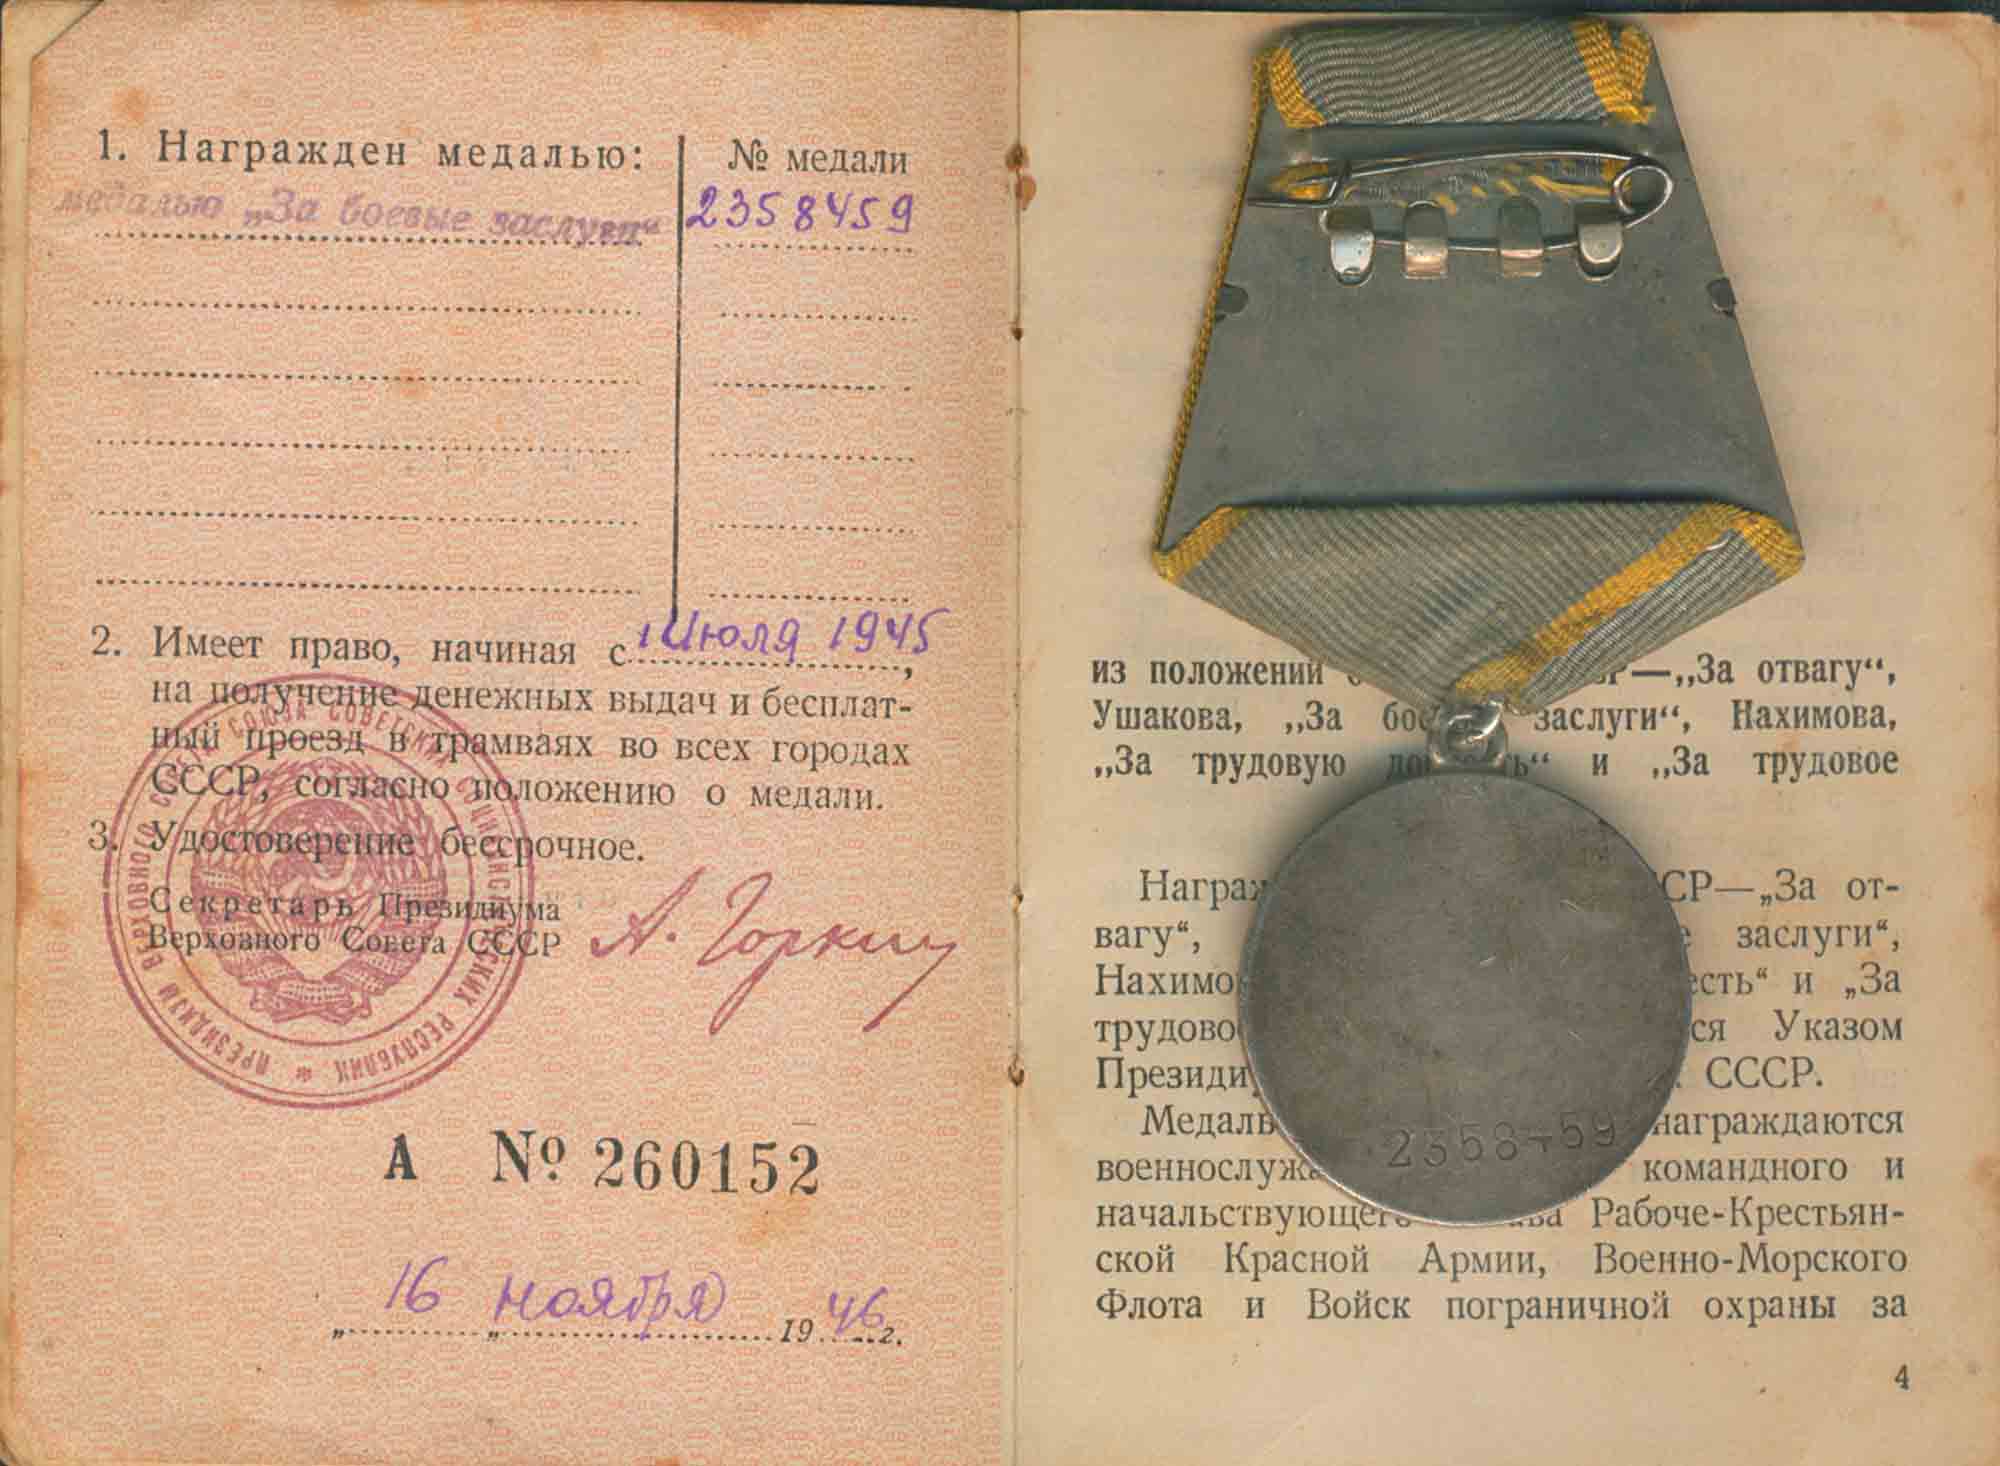 1. Награжден медалью:
№ медали
медалью „За боевые заслуги“
2358459
2. Имеет право, начиная с 1 Июля 1945,
на получение денежных выдач и бесплат-
ный проезд в трамваях во всех городах
СССР, согласно положению о медали.
3. Удостоверение бессрочное.
Секретарь Президиума
Верховного Совета СССР
А. Горкин
ПРЕЗИДИУМ ВЕРХОВНОГО СОВЕТА СОЮЗА СОВЕТСКИХ СОЦИАЛИСТИЧЕСКИХ РЕСПУБЛИК *
А № 260152
„16 „ ноября 1946 г.
из положений СССР—„За отвагу“,
Ушакова, „За боевые заслуги“, Нахимова,
„За трудовую доблесть“ и „За трудовое
Награж СР—„За от-
вагу“, заслуги“,
Нахимо есть“ и „За
трудово ся Указом
Президи СССР.
Медаль награждаются
военнослуж командного и
начальствующего ва Рабоче-Крестьян-
ской Красной Армии, Военно-Морского
Флота и Войск пограничной охраны за
4
2358459